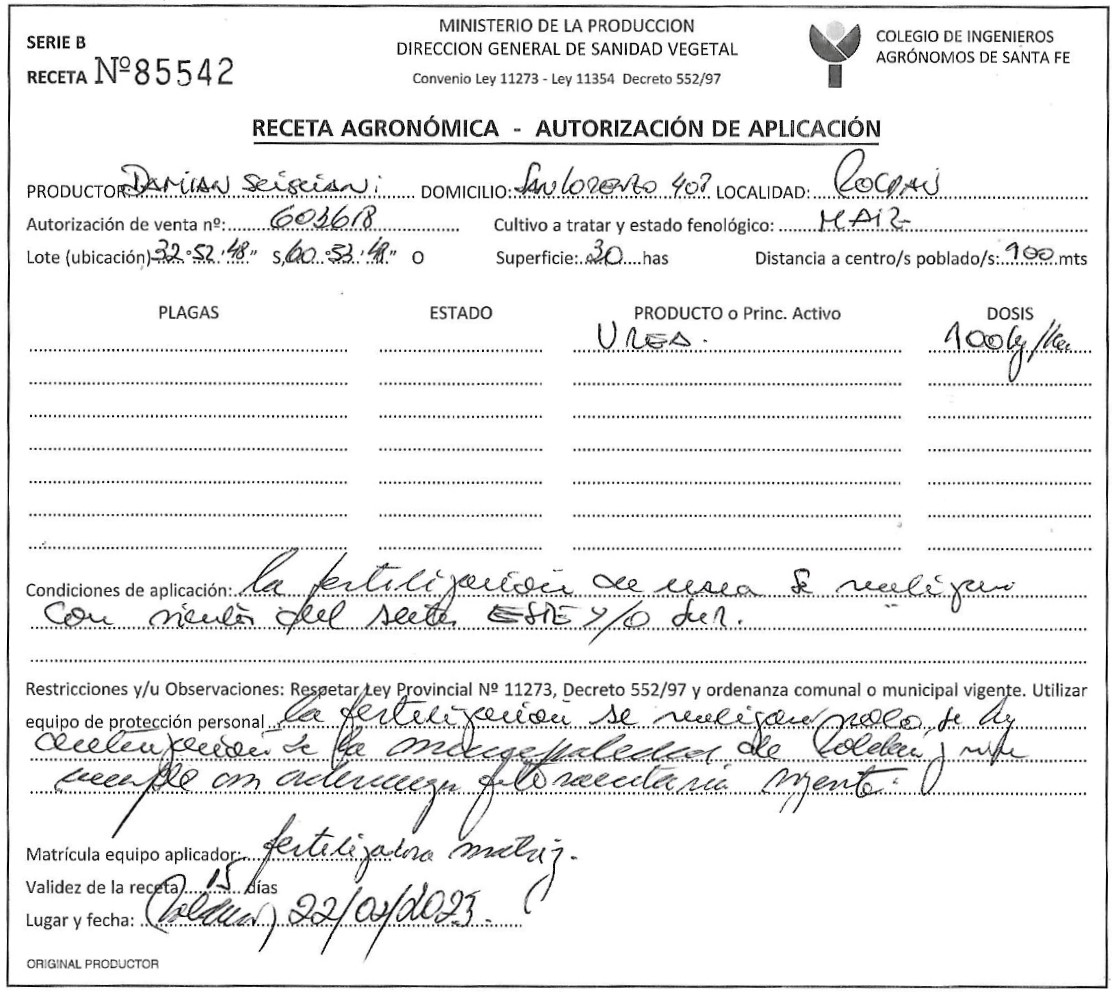 SERIE B
RECETA Nº85542
MINISTERIO DE LA PRODUCCION
DIRECCION GENERAL DE SANIDAD VEGETAL
Convenio Ley 11273 - Ley 11354 Decreto 552/97
COLEGIO DE INGENIEROS
AGRÓNOMOS DE SANTA FE
RECETA AGRONÓMICA - AUTORIZACIÓN DE APLICACIÓN
PRODUCTOR: DAMIAN DOMICILIO: SAN LORENZO 407 LOCALIDAD:
Autorización de venta nº: Cultivo a tratar y estado fenológico: MAIZ
Lote (ubicación) 32º 52' 48" S, 60º 53' 48" O Superficie: 30 has Distancia a centro/s poblado/s: 900 mts
PLAGAS ESTADO PRODUCTO o Princ. Activo DOSIS
UREA. 100 kg/ha
Condiciones de aplicación: la fertilización de urea se realizara
con vientos del sector ESTE Y/O Sur.
Restricciones y/u Observaciones: Respetar Ley Provincial Nº 11273, Decreto 552/97 y ordenanza comunal o municipal vigente. Utilizar
equipo de protección personal la fertilización se realizara solo si hay
autorización de la municipalidad de Roldan y
cumple con ordenanza fitosanitaria vigente.
Matrícula equipo aplicador: fertilizadora matriz.
Validez de la receta 15 días
Lugar y fecha: Roldan, 22/02/2023.
ORIGINAL PRODUCTOR